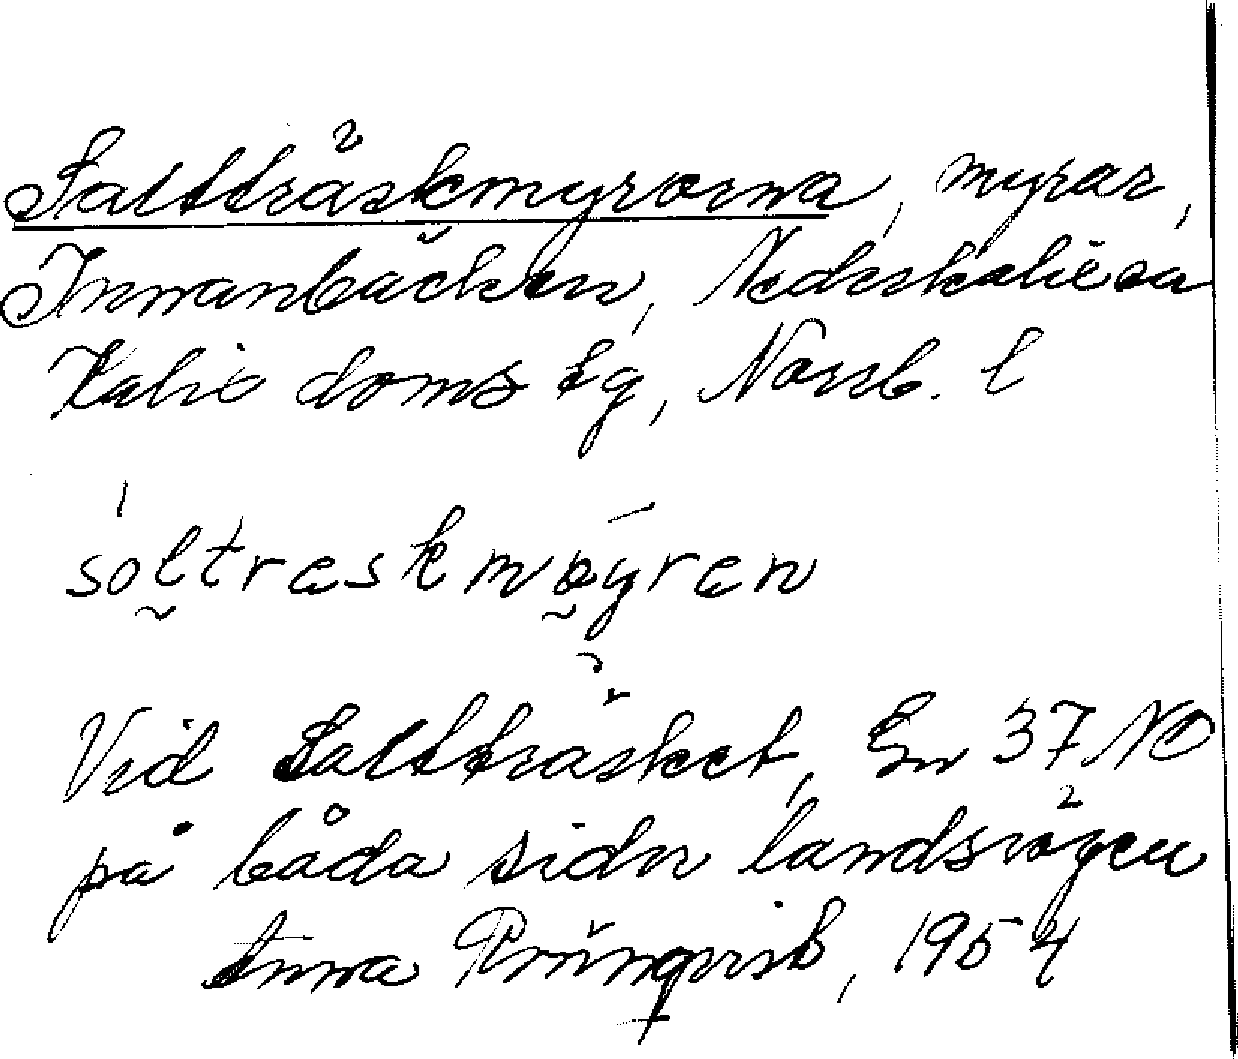 Saltträskmyrorna, myrar,
Innanbäcken, Nederkalix sn
Kalix doms tg, Norrb. l
sòltræskmøyræn
Vid Saltträsket, En 37 NO
på båda sidor landsvägen
Anna Rönnqvist, 1954